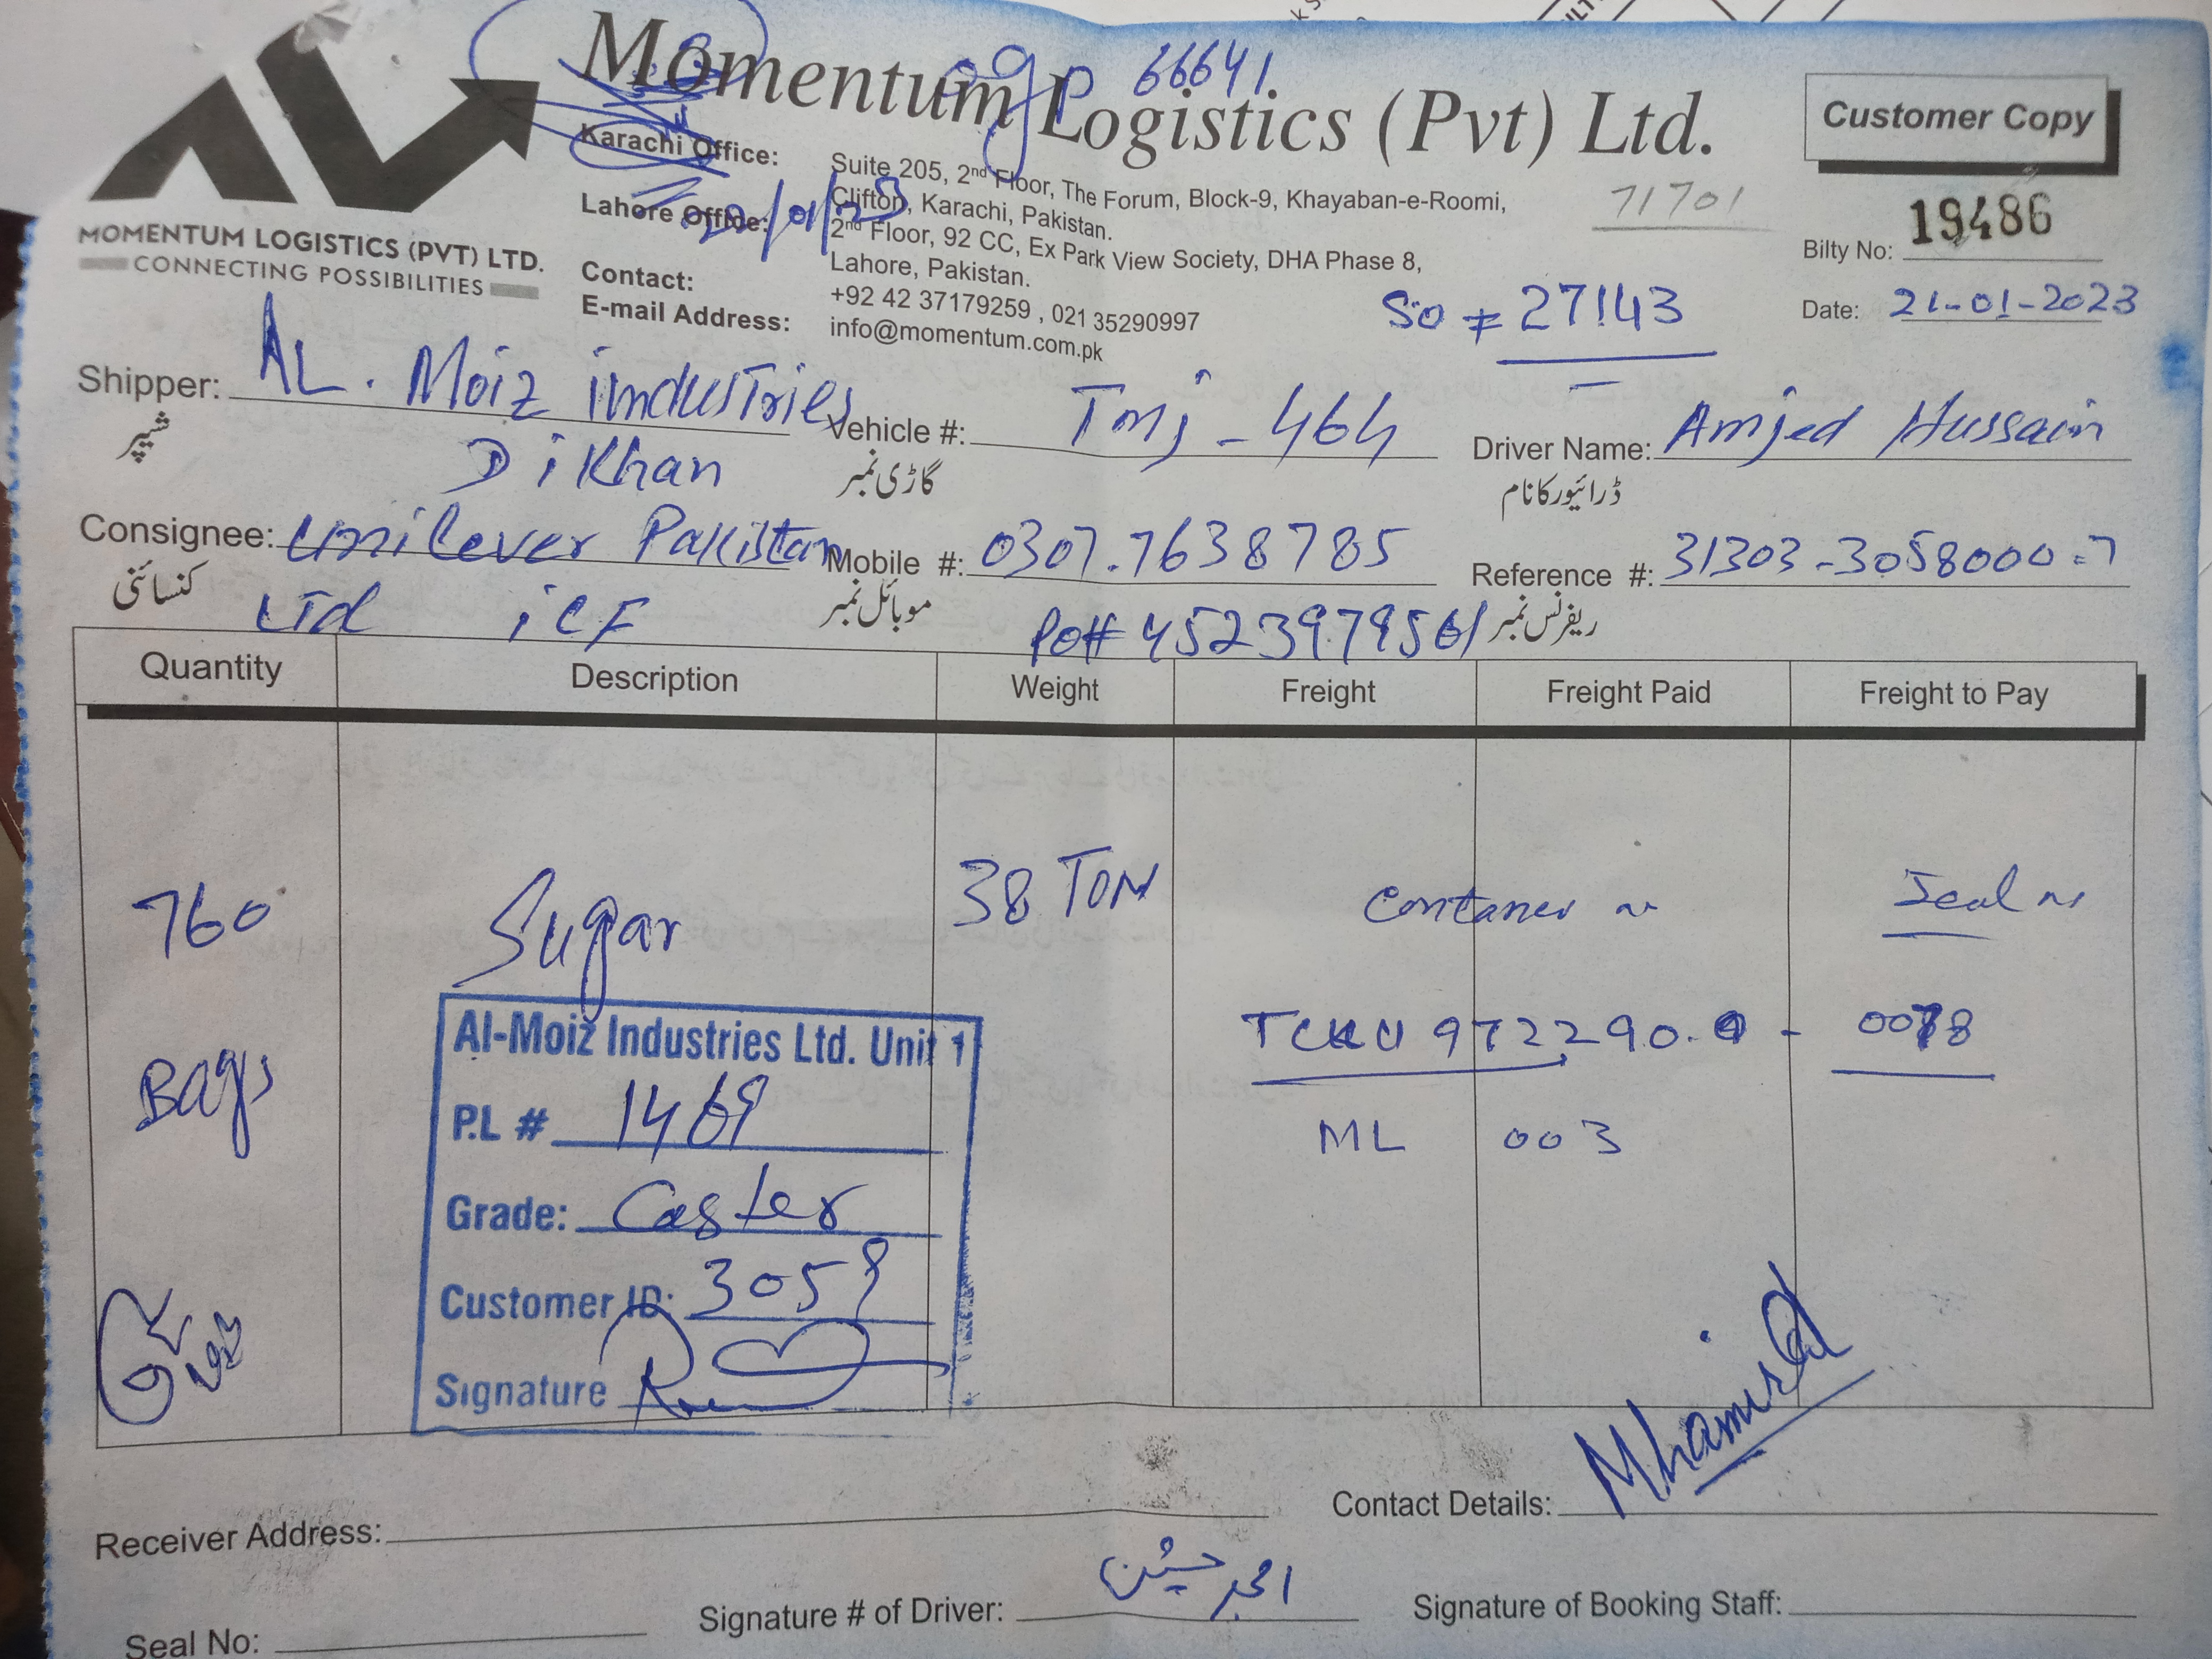 Momentum Logistics (Pvt) Ltd.
OGP 66641
Customer Copy
MOMENTUM LOGISTICS (PVT) LTD.
CONNECTING POSSIBILITIES
Karachi Office: Suite 205, 2nd Floor, The Forum, Block-9, Khayaban-e-Roomi,
Clifton, Karachi, Pakistan.
Lahore Office: 2nd Floor, 92 CC, Ex Park View Society, DHA Phase 8,
Lahore, Pakistan.
Contact: +92 42 37179259 , 021 35290997
E-mail Address: info@momentum.com.pk
71701
Bilty No: 19486
So # 27143
Date: 21-01-2023
Shipper: AL. Moiz industries
DiKhan
شپر
Vehicle #: TMJ-464
گاڑی نمبر
Driver Name: Amjed Hussain
ڈرائیور کا نام
Consignee: Unilever Pakistan
Ltd iCF
کنسائنی
Mobile #: 0307.7638785
موبائل نمبر
Reference #: 31303-3058000-7
ریفرنس نمبر
Po# 4523979561
Quantity Description Weight Freight Freight Paid Freight to Pay
760 Sugar 38 TON Contaner no Seal no
Bags TCKU 972290.9 - 0078
ML 003
Al-Moiz Industries Ltd. Unit 1
P.L # 1469
Grade: Caster
Customer ID: 3059
Signature
Receiver Address:
Contact Details:
Seal No:
Signature # of Driver: امجد حسین
Signature of Booking Staff: